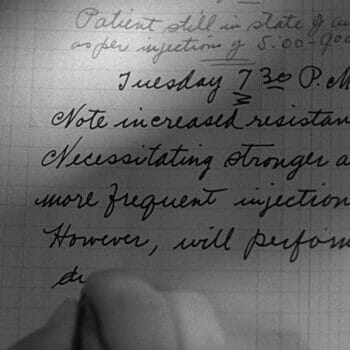 Patient still in state of
as per injections of 5:00-9:00
Tuesday 7 30 P.M
Note increased resistan
Necessitating stronger a
more frequent injection
However, will perform